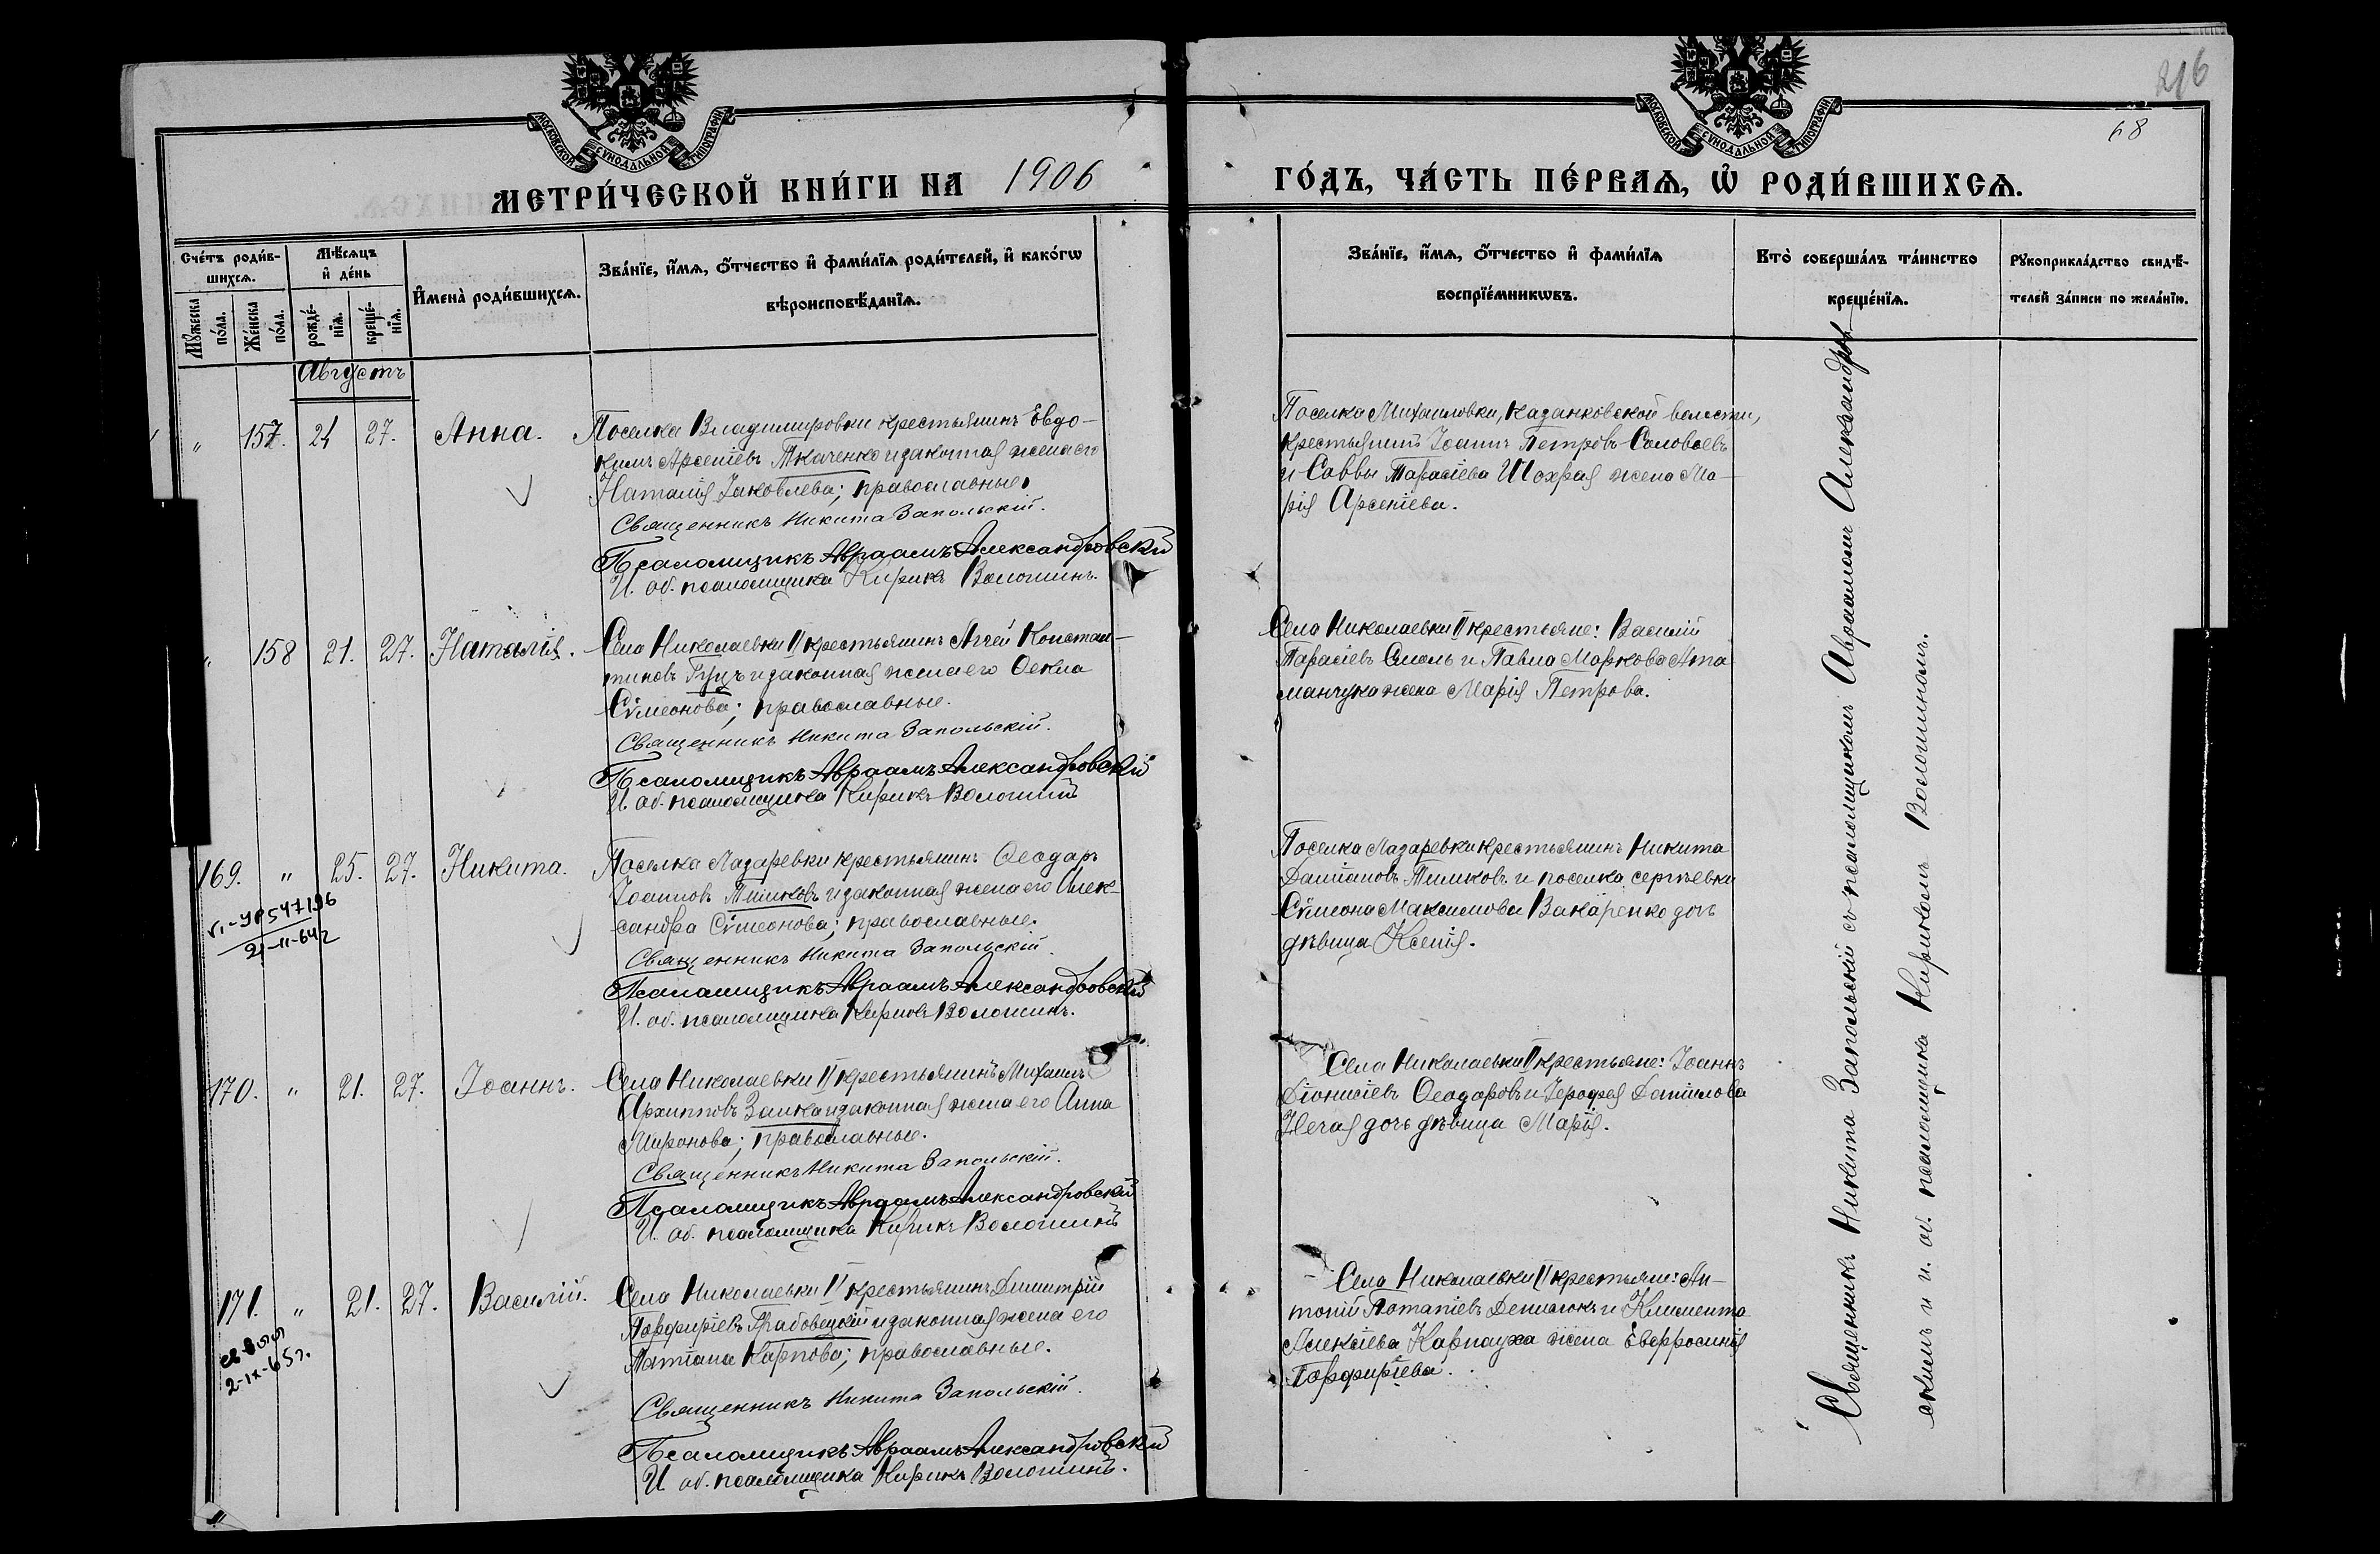 216
68
МОСКОВСКОЙ СУНОДАЛЬНОЙ ТИПОГРАФІИ
МОСКОВСКОЙ СУНОДАЛЬНОЙ ТИПОГРАФІИ
МЕТРИ́ЧЕСКОЙ КНИ́ГИ НА 1906
ГО́ДЪ, ЧА́СТЬ ПЕ́РВАѦ, Ѡ҆ РОДИ́ВШИХСѦ.
Сче́тъ роди́в-
шихсѧ.
Мꙋ́жеска
по́ла.
Же́нска
по́ла.
Мѣ́сѧцъ
и҆ де́нь
рожде́-
нїѧ.
креще́-
нїѧ.
И҆мена̀ роди́вшихсѧ.
Зва́нїе, и҆́мѧ, ѻ҆́тчество и҆ фами́лїѧ роди́телей, и҆ како́гѡ
вѣроисповѣ́данїѧ.
Зва́нїе, и҆́мѧ, ѻ҆́тчество и҆ фами́лїѧ
воспрїе́мникѡвъ.
Кто̀ соверша́лъ та́инство
креще́нїѧ.
Рꙋкоприкла́дство свидѣ́-
телей за́писи по жела́нїю.
Августъ
" 157. 24 27. Анна.
Поселка Владимировки крестьянинъ Евдо-
кимъ Арсеніевъ Ткаченко и законная жена его
Наталія Іаковлева; православные.
Священникъ Никита Запольскій.
Псаломщикъ Авраамъ Александровскій
И. об. псаломщика Кирикъ Волошинъ.
Поселка Михаиловки, Казанковской волости,
крестьянинъ Іоаннъ Петровъ Соловьевъ
и Саввы Тарасіева Шохрая жена Ма-
рія Арсеніева.
" 158 21. 27. Наталія.
Села Николаевки II крестьянинъ Аггей Констан-
тиновъ Гуцъ и законная жена его Ѳекла
Сѵмеонова; православные.
Священникъ Никита Запольскій.
Псаломщикъ Авраамъ Александровскій
И. об. псаломщика Кирикъ Волошинъ
Села Николаевки II крестьяне: Василій
Тарасіевъ Смоль и Павла Маркова Ата
манчука жена Марія Петрова.
169. " 25. 27. Никита.
21-11-64 г
Поселка Лазаревки крестьянинъ Ѳеодоръ
Іоанновъ Тишковъ и законная жена его Алек-
сандра Сѵмеонова; православные.
Священникъ Никита Запольскій.
Псаломщикъ Авраамъ Александровскій
И. об. псаломщика Кирикъ Волошинъ.
Поселка Лазаревки крестьянинъ Никита
Даміановъ Тишковъ и поселка Сергѣевки
Сѵмеона Максимова Вакаренко дочь
дѣвица Ксенія.
170. " 21. 27. Іоаннъ.
Села Николаевки II крестьянинъ Михаилъ
Архипповъ Заика и законная жена его Анна
Миронова; православные.
Священникъ Никита Запольскій.
Псаломщикъ Авраамъ Александровскій
И. об. псаломщика Кирикъ Волошинъ
Села Николаевки II крестьяне: Іоаннъ
Діонисіевъ Ѳеодоровъ и Іерофея Даніилова
Нечая дочь дѣвица Марія.
171. " 21. 27. Василій.
2-IX-65 г.
Села Николаевки II крестьянинъ Димитрій
Порфиріевъ Грабовецкій и законная жена его
Татіана Карпова; православные.
Священникъ Никита Запольскій.
Псаломщикъ Авраамъ Александровскій
И. об. псаломщика Кирикъ Волошинъ.
Села Николаевки II крестьяне: Ан-
тоній Потапіевъ Денисюкъ и Климента
Алексіева Карнауха жена Евфросинія
Порфиріева.
Священникъ Никита Запольскій съ псаломщикомъ Авраамомъ Александров-
скимъ и и. об. псаломщика Кирикомъ Волошиномъ.